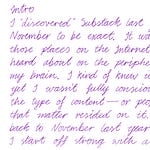 Intro
I "discovered" Substack last
November to be exact. It wa
those places on the Internet
heard about on the periphe
my brain. I kind of knew w
yet I wasn't fully consciou
the type of content — or peo
that matter resided on it.
back to November last year
I start off strong with a